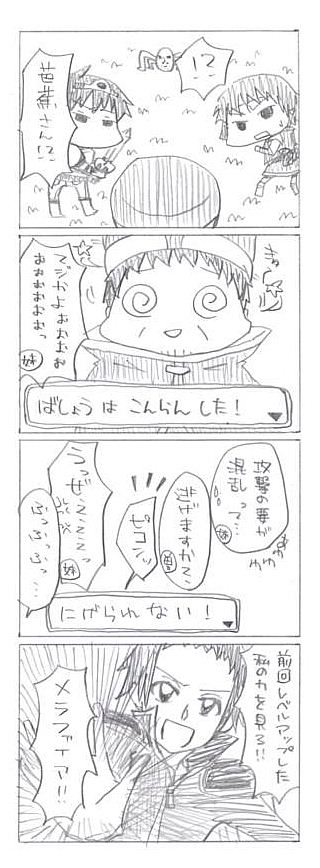 !?
芭蕉さん!?
きゅ〜
マジかよおおおお
おおおおおおっ
妹
ばしょうは こんらんした!
攻撃の要が
混乱って…
妹
逃げますか…
曽
ピコンッ
うっぜエエエエっ
妹
ぶっぶっぶっ…
にげられない!
前回レベルアップした
私の力を見ろ!!
メラブィア!!